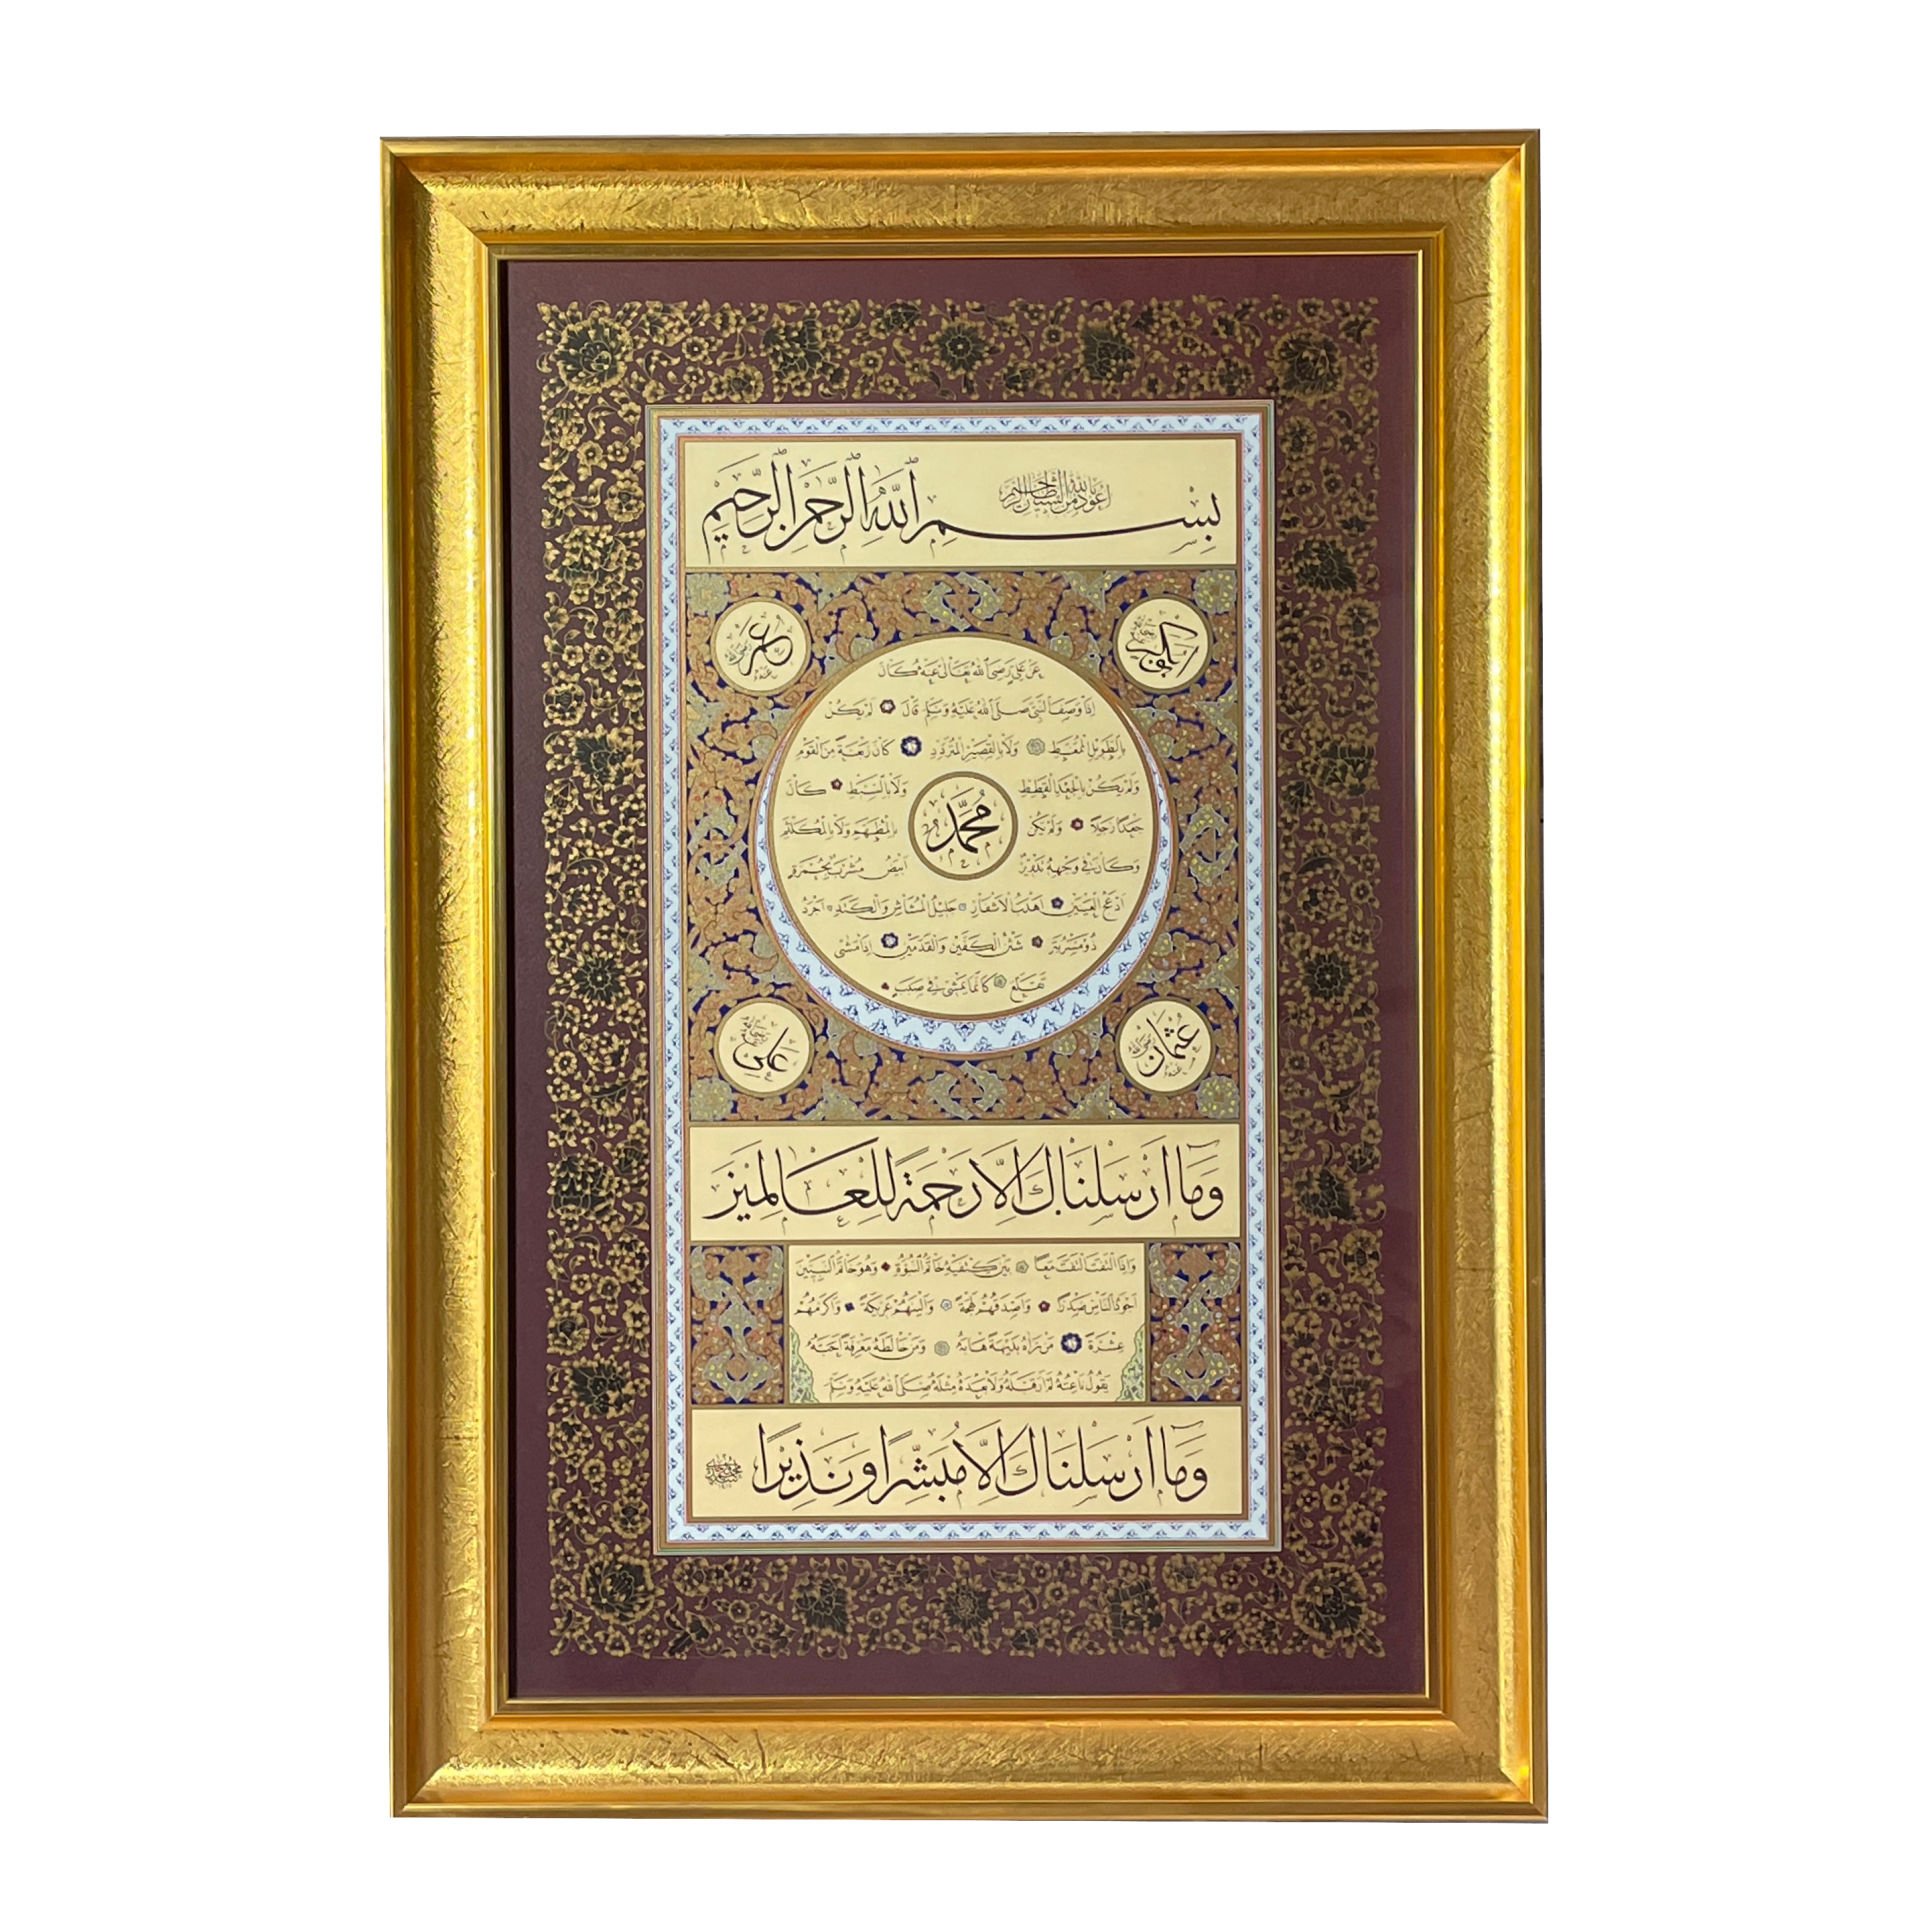 أعوذ بالله من الشيطان الرجيم
بِسْمِ اللهِ الرَّحْمٰنِ الرَّحِيمِ
أبو بكر رضي الله عنه
عمر رضي الله عنه
عن علي رضي الله تعالى عنه كان
إذا وصف النبي صلى الله عليه وسلم قال لم يكن
بالطويل الممغط ولا بالقصير المتردد كان ربعة من القوم
ولم يكن بالجعد القطط ولا بالسبط كان
محمد
جعدا رجلا ولم يكن بالمطهم ولا بالمكلثم
وكان في وجهه تدوير أبيض مشرب بحمرة
ادعج العينين اهدب الاشفار جليل المشاش والكتد اجرد
ذو مسربة شثن الكفين والقدمين إذا مشى
تقلع كأنما يمشي في صبب
عثمان رضي الله عنه
علي رضي الله عنه
وَمَا أَرْسَلْنَاكَ إِلَّا رَحْمَةً لِلْعَالَمِينَ
وإذا التفت التفت معا بين كتفيه خاتم النبوة وهو خاتم النبيين
اجود الناس صدرا واصدقهم لهجة وألينهم عريكة وأكرمهم
عشرة من رآه بديهة هابه ومن خالطه معرفة احبه
يقول ناعته لم ار قبله ولا بعده مثله صلى الله عليه وسلم
وَمَا أَرْسَلْنَاكَ إِلَّا مُبَشِّرًا وَنَذِيرًا